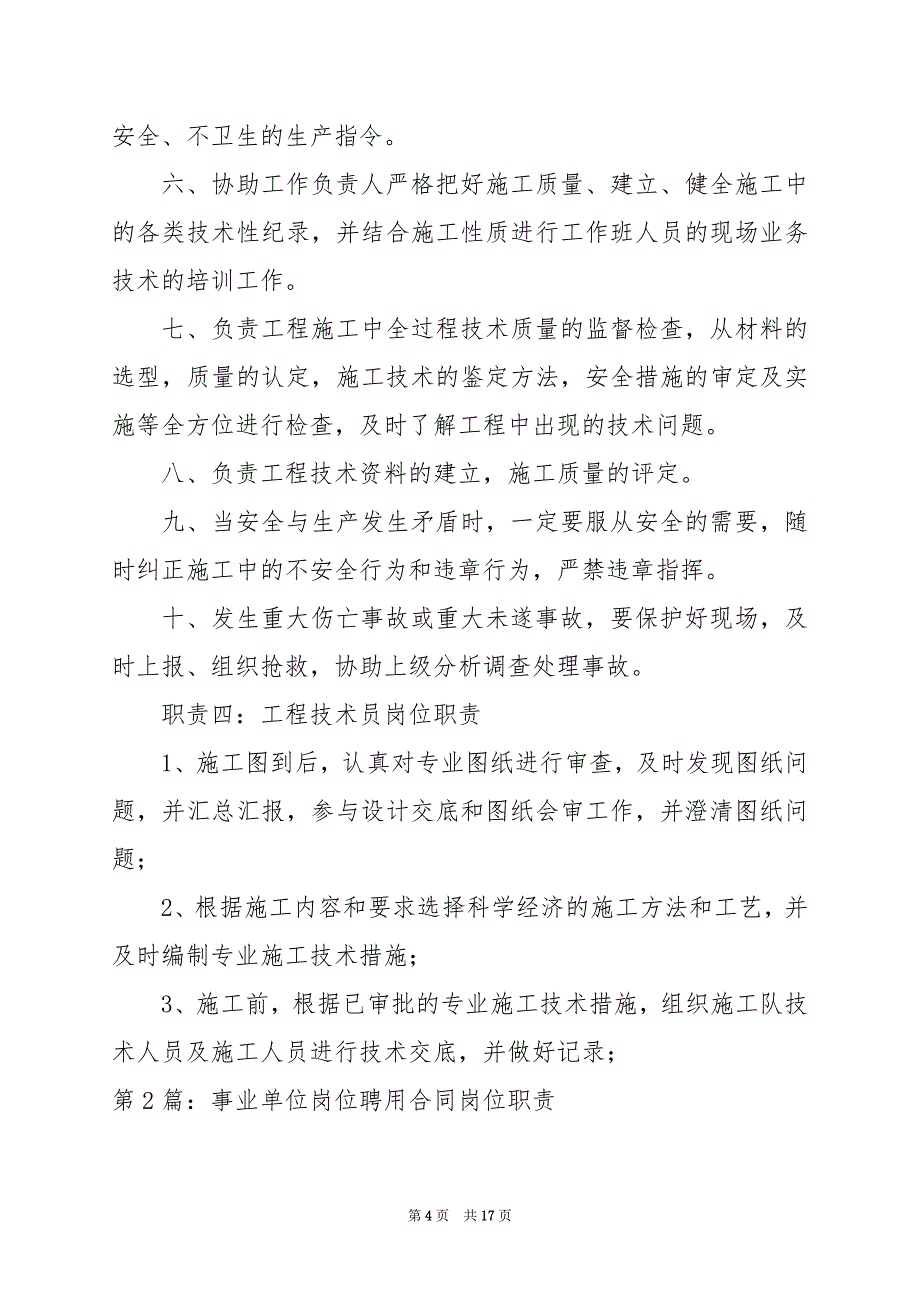 安全、不卫生的生产指令。
六、协助工作负责人严格把好施工质量、建立、健全施工中
的各类技术性纪录，并结合施工性质进行工作班人员的现场业务
技术的培训工作。
七、负责工程施工中全过程技术质量的监督检查，从材料的
选型，质量的认定，施工技术的鉴定方法，安全措施的审定及实
施等全方位进行检查，及时了解工程中出现的技术问题。
八、负责工程技术资料的建立，施工质量的评定。
九、当安全与生产发生矛盾时，一定要服从安全的需要，随
时纠正施工中的不安全行为和违章行为，严禁违章指挥。
十、发生重大伤亡事故或重大未遂事故，要保护好现场，及
时上报、组织抢救，协助上级分析调查处理事故。
职责四：工程技术员岗位职责
1、施工图到后，认真对专业图纸进行审查，及时发现图纸问
题，并汇总汇报，参与设计交底和图纸会审工作，并澄清图纸问
题；
2、根据施工内容和要求选择科学经济的施工方法和工艺，并
及时编制专业施工技术措施；
3、施工前，根据已审批的专业施工技术措施，组织施工队技
术人员及施工人员进行技术交底，并做好记录；
第 2 篇：事业单位岗位聘用合同岗位职责
第 4 页 共 17 页